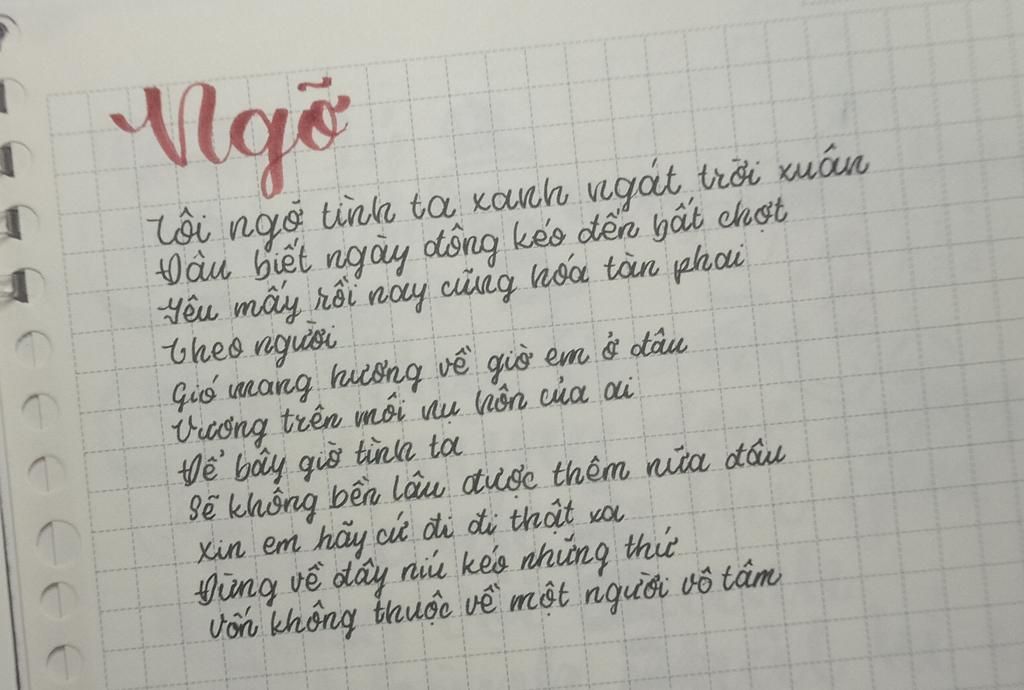 Ngỡ
Tôi ngỡ tình ta xanh ngát trời xuân
Đâu biết ngày đông kéo đến bất chợt
Yêu mấy rồi nay cũng hóa tàn phai
Theo người
Gió mang hương về giờ em ở đâu
Vương trên môi nụ hôn của ai
Để bây giờ tình ta
Sẽ không bền lâu được thêm nữa đâu
Xin em hãy cứ đi đi thật xa
Đừng về đây níu kéo những thứ
Vốn không thuộc về một người vô tâm